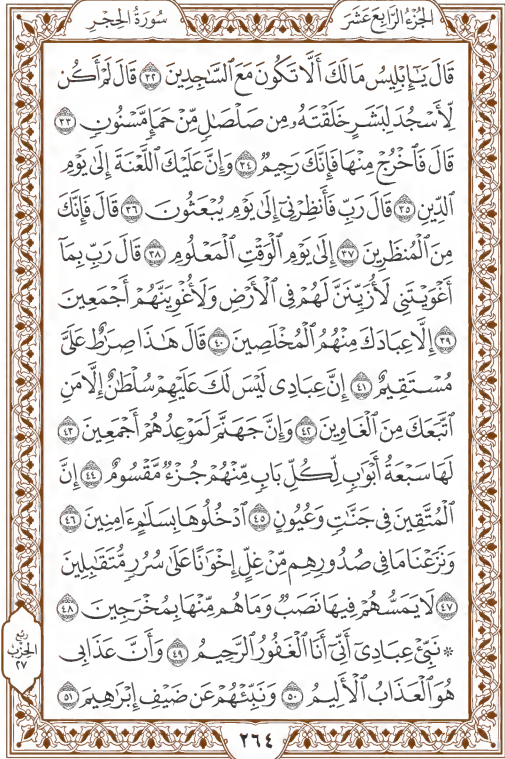 الجُزْءُ الرَّابِعَ عَشَرَ
سُورَةُ الحِجْرِ
قَالَ يَـٰٓإِبْلِيسُ مَا لَكَ أَلَّا تَكُونَ مَعَ ٱلسَّـٰجِدِينَ ٣٢ قَالَ لَمْ أَكُن
لِّأَسْجُدَ لِبَشَرٍ خَلَقْتَهُۥ مِن صَلْصَـٰلٍ مِّنْ حَمَإٍ مَّسْنُونٍ ٣٣
قَالَ فَٱخْرُجْ مِنْهَا فَإِنَّكَ رَجِيمٌ ٣٤ وَإِنَّ عَلَيْكَ ٱللَّعْنَةَ إِلَىٰ يَوْمِ
ٱلدِّينِ ٣٥ قَالَ رَبِّ فَأَنظِرْنِىٓ إِلَىٰ يَوْمِ يُبْعَثُونَ ٣٦ قَالَ فَإِنَّكَ
مِنَ ٱلْمُنظَرِينَ ٣٧ إِلَىٰ يَوْمِ ٱلْوَقْتِ ٱلْمَعْلُومِ ٣٨ قَالَ رَبِّ بِمَآ
أَغْوَيْتَنِى لَأُزَيِّنَنَّ لَهُمْ فِى ٱلْأَرْضِ وَلَأُغْوِيَنَّهُمْ أَجْمَعِينَ
٣٩ إِلَّا عِبَادَكَ مِنْهُمُ ٱلْمُخْلَصِينَ ٤٠ قَالَ هَـٰذَا صِرَٰطٌ عَلَىَّ
مُسْتَقِيمٌ ٤١ إِنَّ عِبَادِى لَيْسَ لَكَ عَلَيْهِمْ سُلْطَـٰنٌ إِلَّا مَنِ
ٱتَّبَعَكَ مِنَ ٱلْغَاوِينَ ٤٢ وَإِنَّ جَهَنَّمَ لَمَوْعِدُهُمْ أَجْمَعِينَ ٤٣
لَهَا سَبْعَةُ أَبْوَٰبٍ لِّكُلِّ بَابٍ مِّنْهُمْ جُزْءٌ مَّقْسُومٌ ٤٤ إِنَّ
ٱلْمُتَّقِينَ فِى جَنَّـٰتٍ وَعُيُونٍ ٤٥ ٱدْخُلُوهَا بِسَلَـٰمٍ ءَامِنِينَ ٤٦
وَنَزَعْنَا مَا فِى صُدُورِهِم مِّنْ غِلٍّ إِخْوَٰنًا عَلَىٰ سُرُرٍ مُّتَقَـٰبِلِينَ
٤٧ لَا يَمَسُّهُمْ فِيهَا نَصَبٌ وَمَا هُم مِّنْهَا بِمُخْرَجِينَ ٤٨
۞ نَبِّئْ عِبَادِىٓ أَنِّىٓ أَنَا ٱلْغَفُورُ ٱلرَّحِيمُ ٤٩ وَأَنَّ عَذَابِى
هُوَ ٱلْعَذَابُ ٱلْأَلِيمُ ٥٠ وَنَبِّئْهُمْ عَن ضَيْفِ إِبْرَٰهِيمَ ٥١
ربع
الحزب
٢٧
٢٦٤